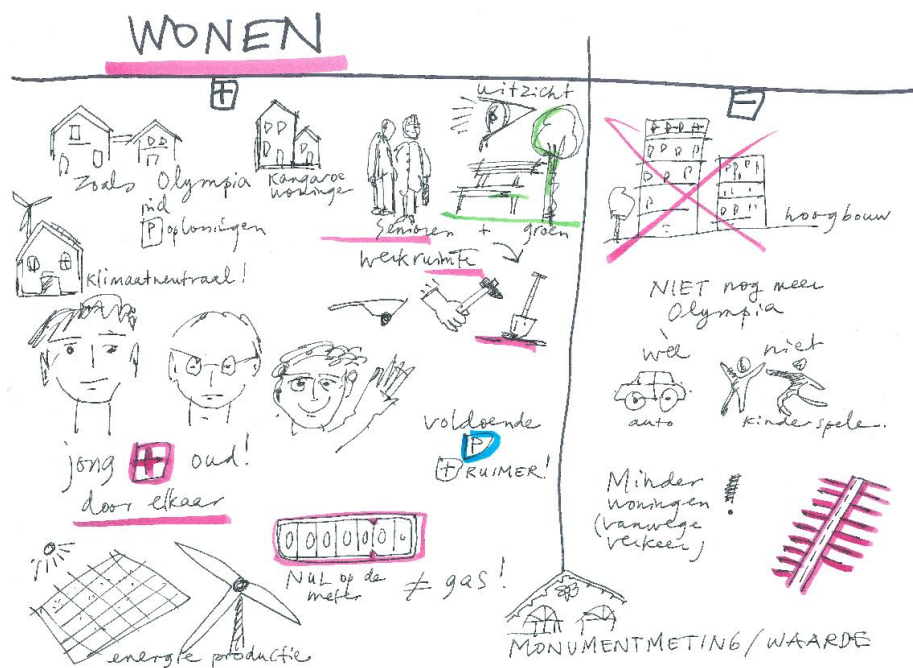 WONEN
+
Zoals Olympia
mid
P oplossingen
Kangaroe
woningen
uitzicht
Senioren + groen
Klimaatneutraal!
Werkruimte
jong + oud!
door elkaar
voldoende
P
+ RUIMER!
000000.
NUL op de
meter
≠ gas!
energie productie
−
hoogbouw
NIET nog meer
Olympia
wèl
auto
niet
Kinderspelen.
Minder
woningen
(vanwege
verkeer)
!
MONUMENTMETING/WAARDE